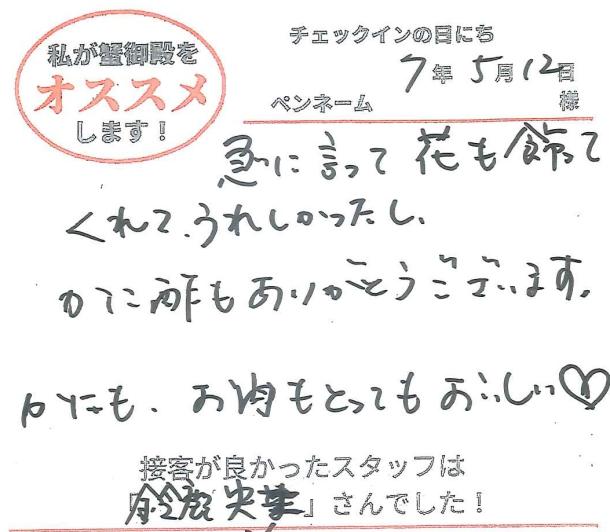 私が蟹御殿を
オススメ
します！
チェックインの日にち
7年5月12日
ペンネーム 様
急に言って花も飾って
くれて、うれしかったし、
かに酢もありがとうございます。
かにも、お肉もとってもおいしい♡
接客が良かったスタッフは
「鈴鹿 」さんでした！